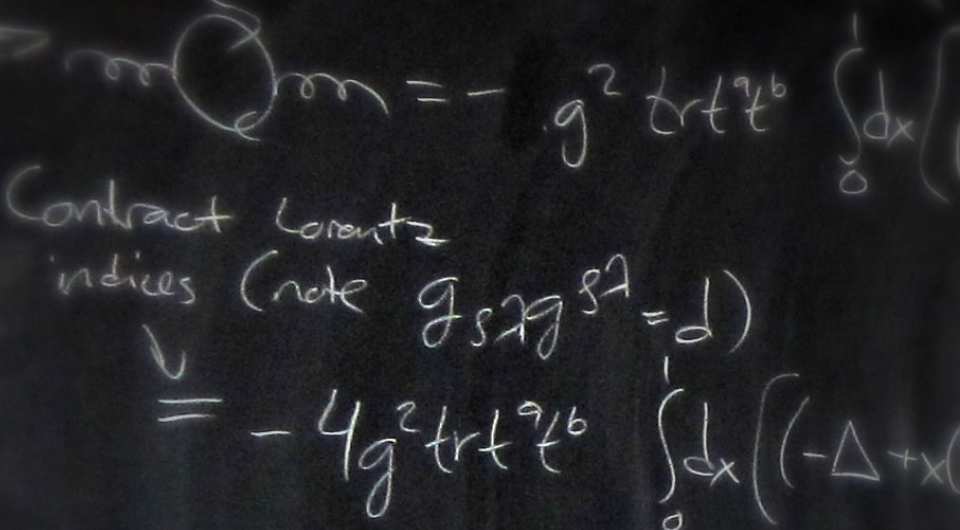 = - g² tr tᵃtᵇ ∫₀¹ dx (
Contract Lorentz
indices (note g_ρλ g^ρλ = d)
= - 4g² tr tᵃtᵇ ∫₀¹ dx ((-Δ + x(